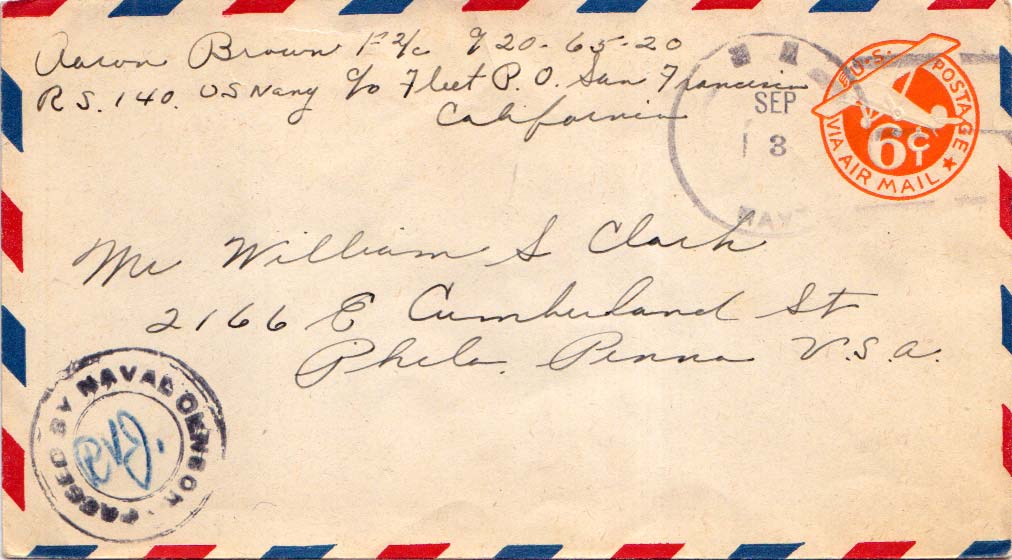 Aaron Brown F 2/c 920-65-20
R S. 140. US Navy c/o Fleet P. O. San Francisco
California
SEP
3
NAVY
U.S. POSTAGE
6¢
VIA AIR MAIL
Mr William S Clark
2166 E Cumberland St
Phila. Penna U.S.A.
PASSED BY NAVAL CENSOR
RVJ.